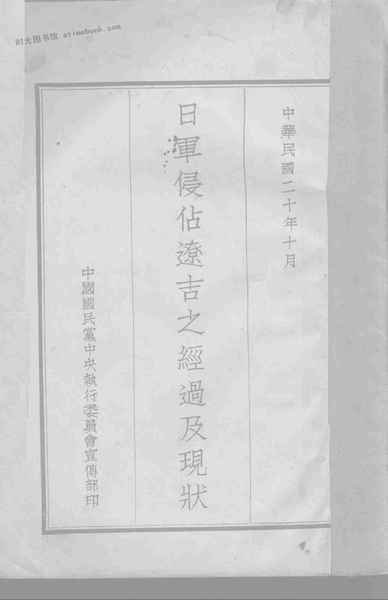 时光图书馆 syimebook.com
中華民國二十年十月
日軍侵佔遼吉之經過及現狀
中國國民黨中央執行委員會宣傳部印